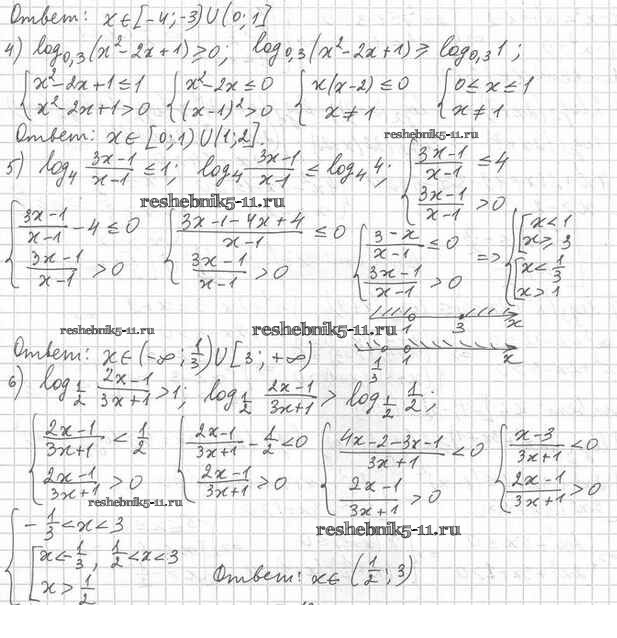 Ответ: x∈[-4;-3)∪(0;1]
4) log₀,₃(x²-2x+1)≥0; log₀,₃(x²-2x+1)≥log₀,₃1;
{x²-2x+1≤1 {x²-2x≤0 {x(x-2)≤0 {0≤x≤1
x²-2x+1>0 (x-1)²>0 x≠1 x≠1
Ответ: x∈[0;1)∪(1;2].
reshebnik5-11.ru
5) log₄ (3x-1)/(x-1) ≤1; log₄ (3x-1)/(x-1) ≤log₄4; {(3x-1)/(x-1) ≤4
(3x-1)/(x-1) >0
reshebnik5-11.ru
{(3x-1)/(x-1) -4≤0 {(3x-1-4x+4)/(x-1) ≤0 {(3-x)/(x-1) ≤0 => {[x<1
x≥3
(3x-1)/(x-1) >0 (3x-1)/(x-1) >0 (3x-1)/(x-1) >0 [x<1/3
x>1
1 3 x
reshebnik5-11.ru
reshebnik5-11.ru
1/3 1 x
Ответ: x∈(-∞;1/3)∪[3;+∞)
6) log₁/₂ (2x-1)/(3x+1) >1; log₁/₂ (2x-1)/(3x+1) > log₁/₂ 1/2;
{(2x-1)/(3x+1) <1/2 {(2x-1)/(3x+1) -1/2<0 {(4x-2-3x-1)/(3x+1) <0 {(x-3)/(3x+1) <0
(2x-1)/(3x+1) >0 (2x-1)/(3x+1) >0 (2x-1)/(3x+1) >0 (2x-1)/(3x+1) >0
reshebnik5-11.ru
reshebnik5-11.ru
{-1/3<x<3
[x<-1/3, 1/2<x<3
x>1/2
Ответ: x∈(1/2;3)